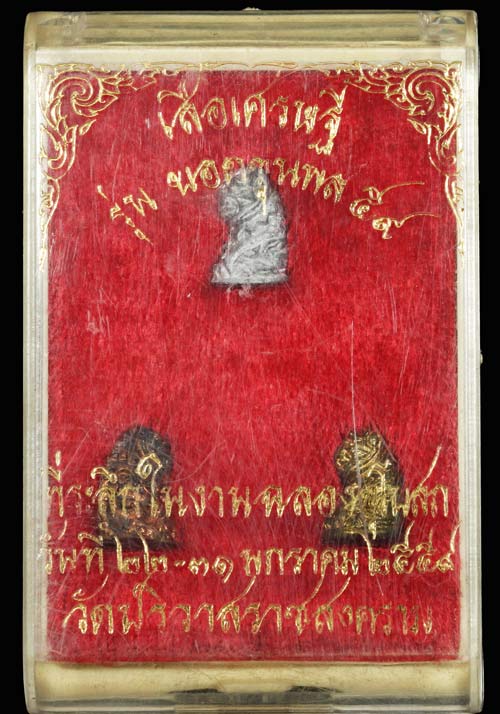 เสือเศรษฐี
รุ่น ยอดขุนพล ๕๔
ที่ระลึกในงานฉลองอุโบสถ
วันที่ ๒๒-๓๑ มกราคม ๒๕๕๔
วัดปริวาสราชสงคราม